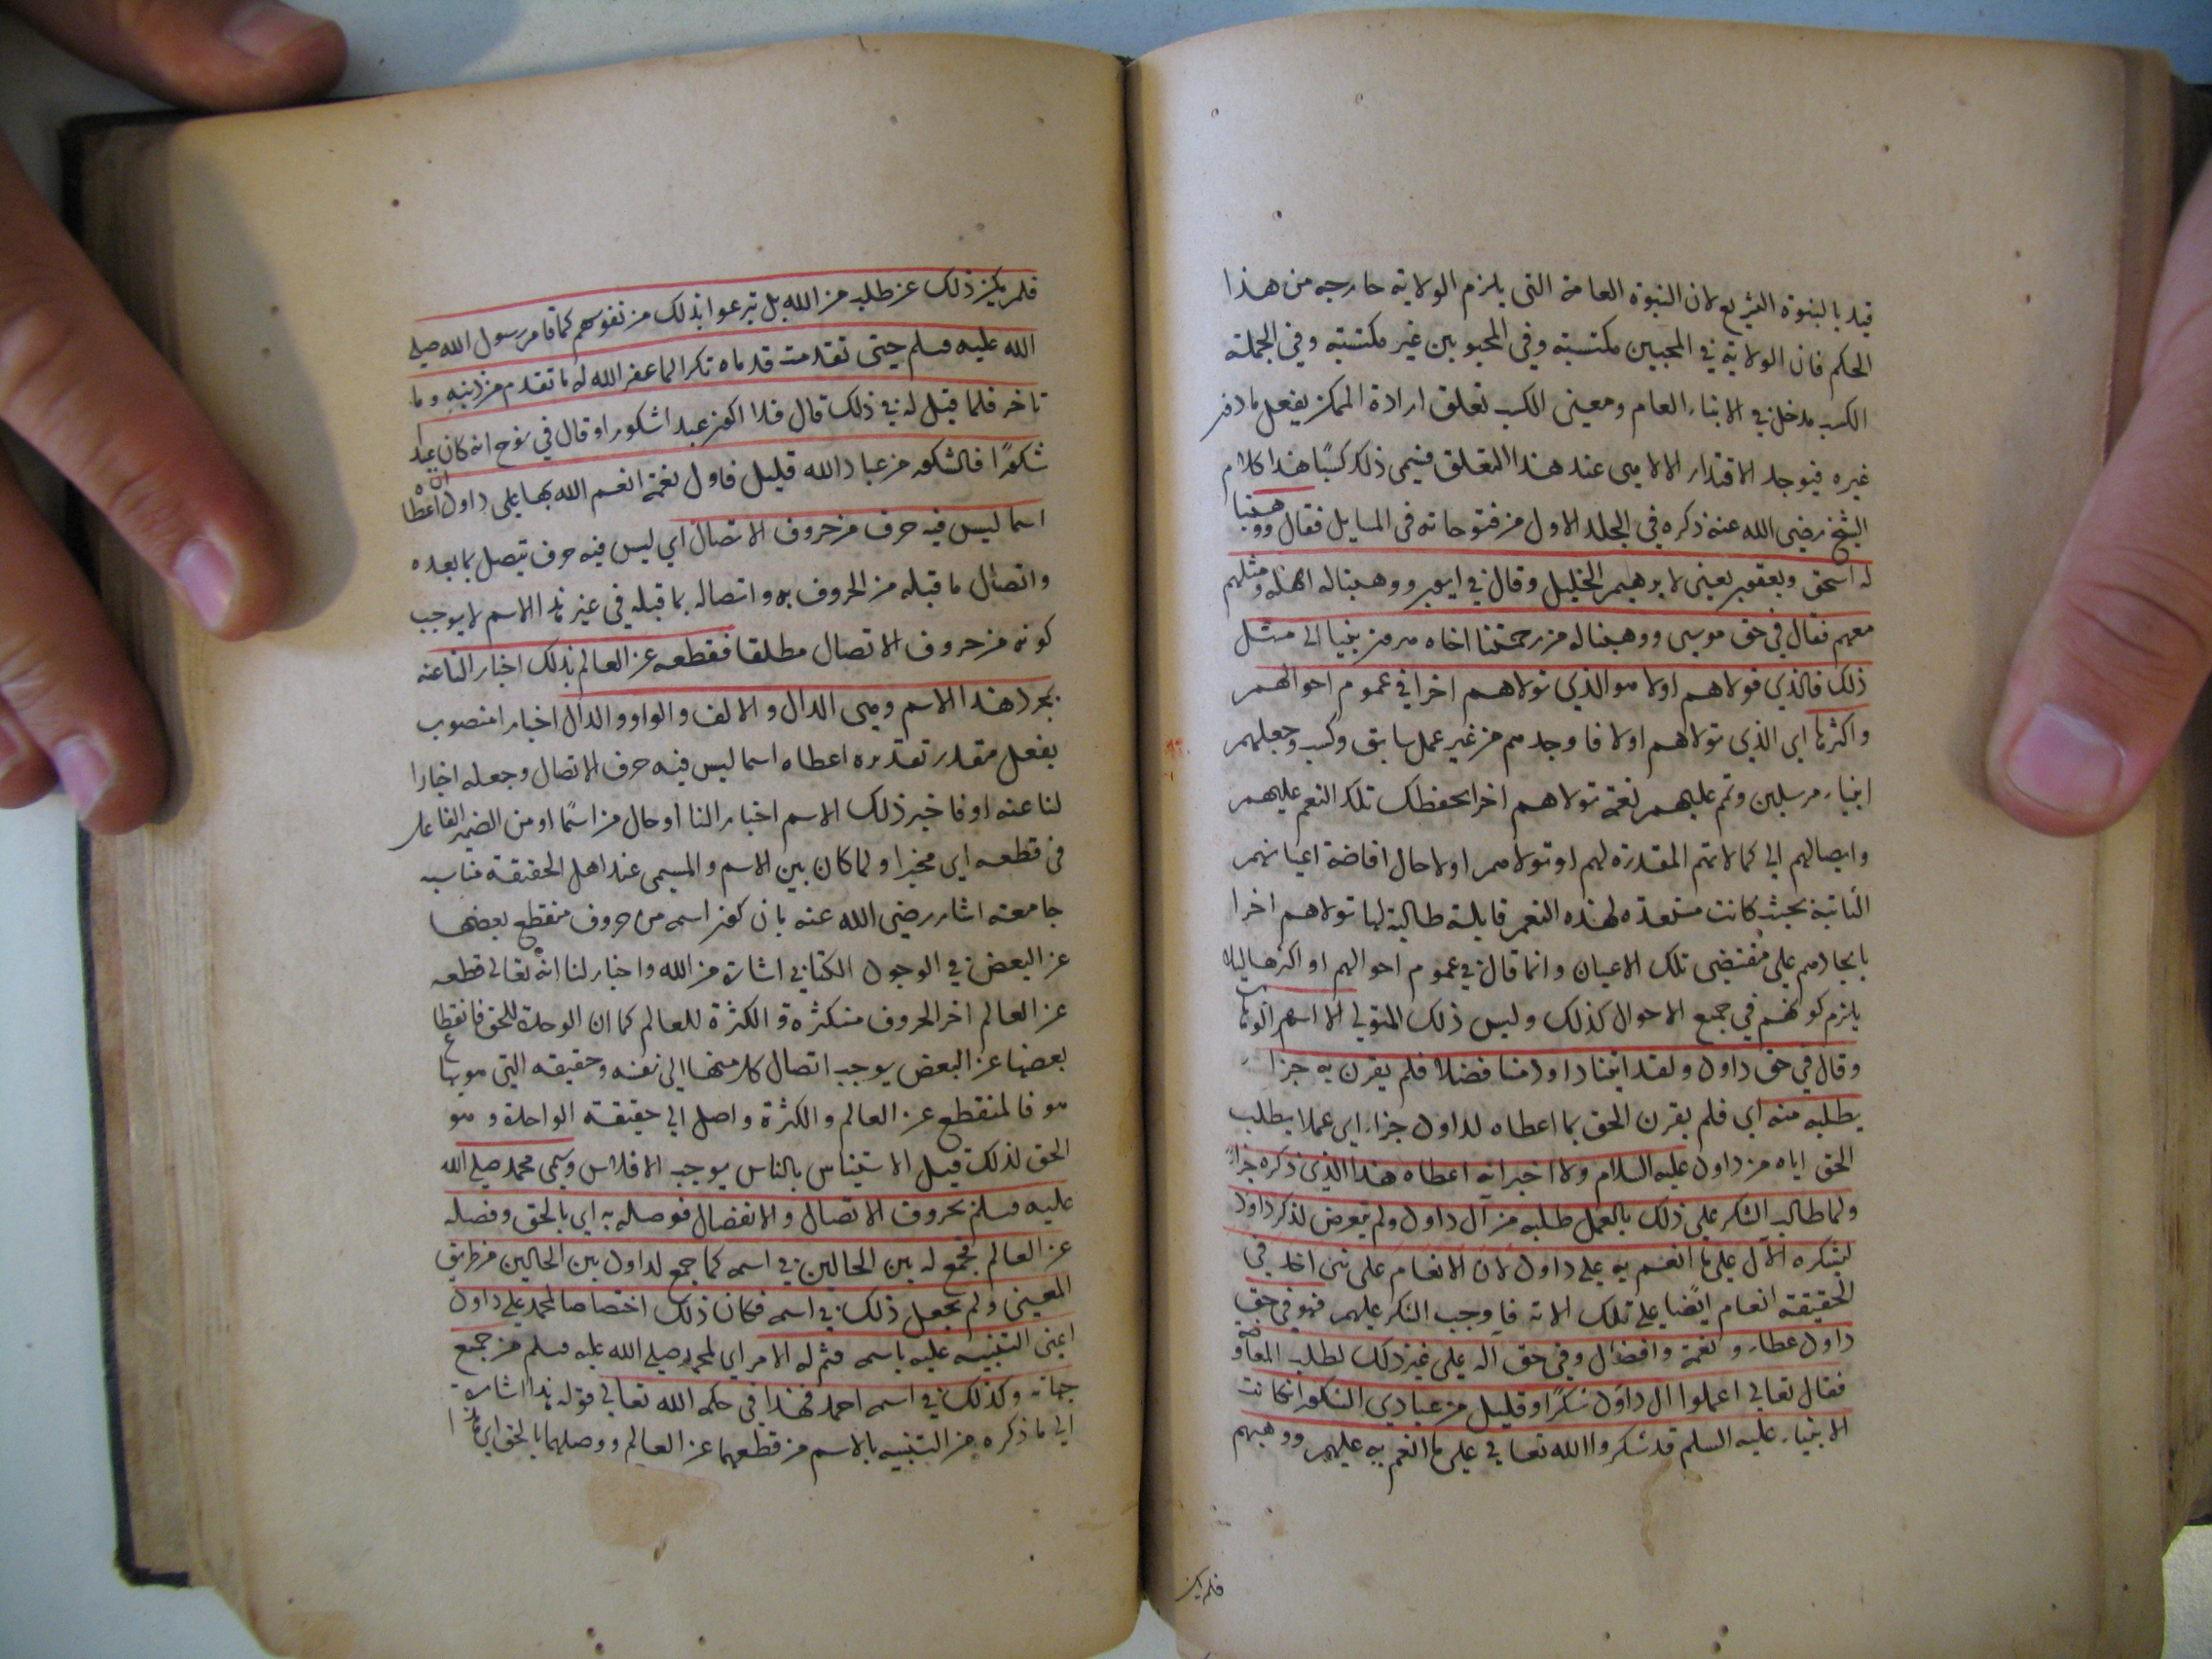 قيد بالنبوة التشريع لان النبوة العامة التى يلزم الولاية خارجه من هذا
الحكم فان الولاية في المحبين مكتسبة وفي المحبوبين غير مكتسبة وفي الجملة
الكسب مدخل في الانباء العام ومعنى الكسب تعلق ارادة الممكن بفعل ما دون
غيره فيوجد الاقتدار الالهى عند هذا التعلق فيسمى ذلك كسبًا هذا كلام
الشيخ رضى الله عنه ذكره في المجلد الاول من فتوحاته فى المسايل فقال ووهبنا
له اسحق ويعقوب يعنى لابرهيم الخليل وقال في ايوب ووهبنا له اهله ومثلهم
معهم فقال في حق موسى ووهبنا له من رحمتنا اخاه هرون نبيا الى مثل
ذلك فالذي تولاهم اولا هو الذي تولاهم اخرا في عموم احوالهم
واكثرها اى الذى تولاهم اولا فاوجدهم من غير عمل سابق وكسب وجعلهم
انبياء مرسلين وتم عليهم نعمة تولاهم اخرا بحفظ تلك النعم عليهم
وايصالهم الى كمالاتهم المقدرة لهم او تولاهم اولا حال افاضة اعيانهم
الثابتة بحيث كانت مستعدة لهذه النعم قابلة طالبة لها تولاهم اخرا
بايجادهم على مقتضى تلك الاعيان وانما قال في عموم احوالهم او اكثرها لئلا
يلزم كونهم في جميع الاحوال كذلك وليس ذلك المتولي الا اسم الوهاب
وقال في حق داود ولقد اتينا داود منا فضلا فلم يقرن به جزاء
يطلبه منه اى فلم يقرن الحق بما اعطاه لداود جزاء اى عملا يطلب
الحق اياه من داود عليه السلام ولا اخبر انه اعطاه هذا الذي ذكره جزاءً
ولما طلب الشكر على ذلك بالعمل طلبه من آل داود ولم يتعرض لذكر داود
ليشكره الآل على ما انعم به على داود لان الانعام على شى اخد في
الحقيقة انعام ايضًا على تلك الامة فاوجب الشكر عليهم فهو في حق
داود عطاء ونعمة وافضال وفي حق آله على غير ذلك لطلب المعاوضة
فقال تعالى اعملوا ال داود شكرًا وقليل من عبادي الشكور وان كانت
الانبياء عليه السلم قد شكروا الله تعالى على ما انعم به عليهم ووهبهم
فلم يكن
فلم يكن ذلك عن طلب من الله بل تبرعوا بذلك من نفوسهم كما قام رسول الله صلى
الله عليه وسلم حتى تقدمت قدماه شكرا لما غفر الله له ما تقدم من ذنبه وما
تاخر فلما قيل له في ذلك قال فلا اكون عبدا شكورا وقال في نوح انه كان عبدا
شكورًا فالشكور من عباد الله قليل فاول نعمة انعم الله بها على داود ان اعطاه
اسما ليس فيه حرف من حروف الاتصال اي ليس فيه حرف يتصل بما بعده
واتصال ما قبله من الحروف به واتصاله بما قبله في غير هذا الاسم لا يوجب
كونه من حروف الاتصال مطلقا فقطعه عن العالم بذلك اخبار النا عنه
بمجرد هذا الاسم وهى الدال والالف والواو والدال اخبارا منصوب
بفعل مقدر تقديره اعطاه اسما ليس فيه حرف الاتصال وجعله اخبارا
لنا عنه او فاخبر ذلك الاسم اخبار النا او حال من اسمًا او من الضمير الفاعل
فى قطعه اى مخبرا ولما كان بين الاسم والمسمى عند اهل الحقيقة مناسبه
جامعة اشار رضى الله عنه بان كون اسمه من حروف منقطع بعضها
عن البعض في الوجود الكتابي اشارة من الله واخبار لنا انه تعالى قطعه
عن العالم اخر الحروف متكثرة والكثرة للعالم كما ان الوحدة للحق فانقطاع
بعضها عن البعض يوجب اتصال كل منها الى نفسه وحقيقه التى هو بها
هو فالمنقطع عن العالم والكثرة واصل الى حقيقة الواحدة وهو
الحق لذلك قيل الاستيناس بالناس يوجب الافلاس وسمى محمد صلى الله
عليه وسلم بحروف الاتصال والانفصال فوصله به اي بالحق وفصله
عن العالم فجمع له بين الحالين في اسمه كما جمع لداود بين الحالين من طريق
المعنى ولم يجعل ذلك في اسمه فكان ذلك اختصاصا لمحمد على داود
اعنى التنبيه عليه باسمه فتم له الامر اى لمحمد صلى الله عليه وسلم من جميع
جهاته وكذلك في اسمه احمد فهذا في حكم الله تعالى قوله هذا اشارة
الى ما ذكره من التنبيه بالاسم من قطعهما عن العالم ووصلهما بالحق اى هذا